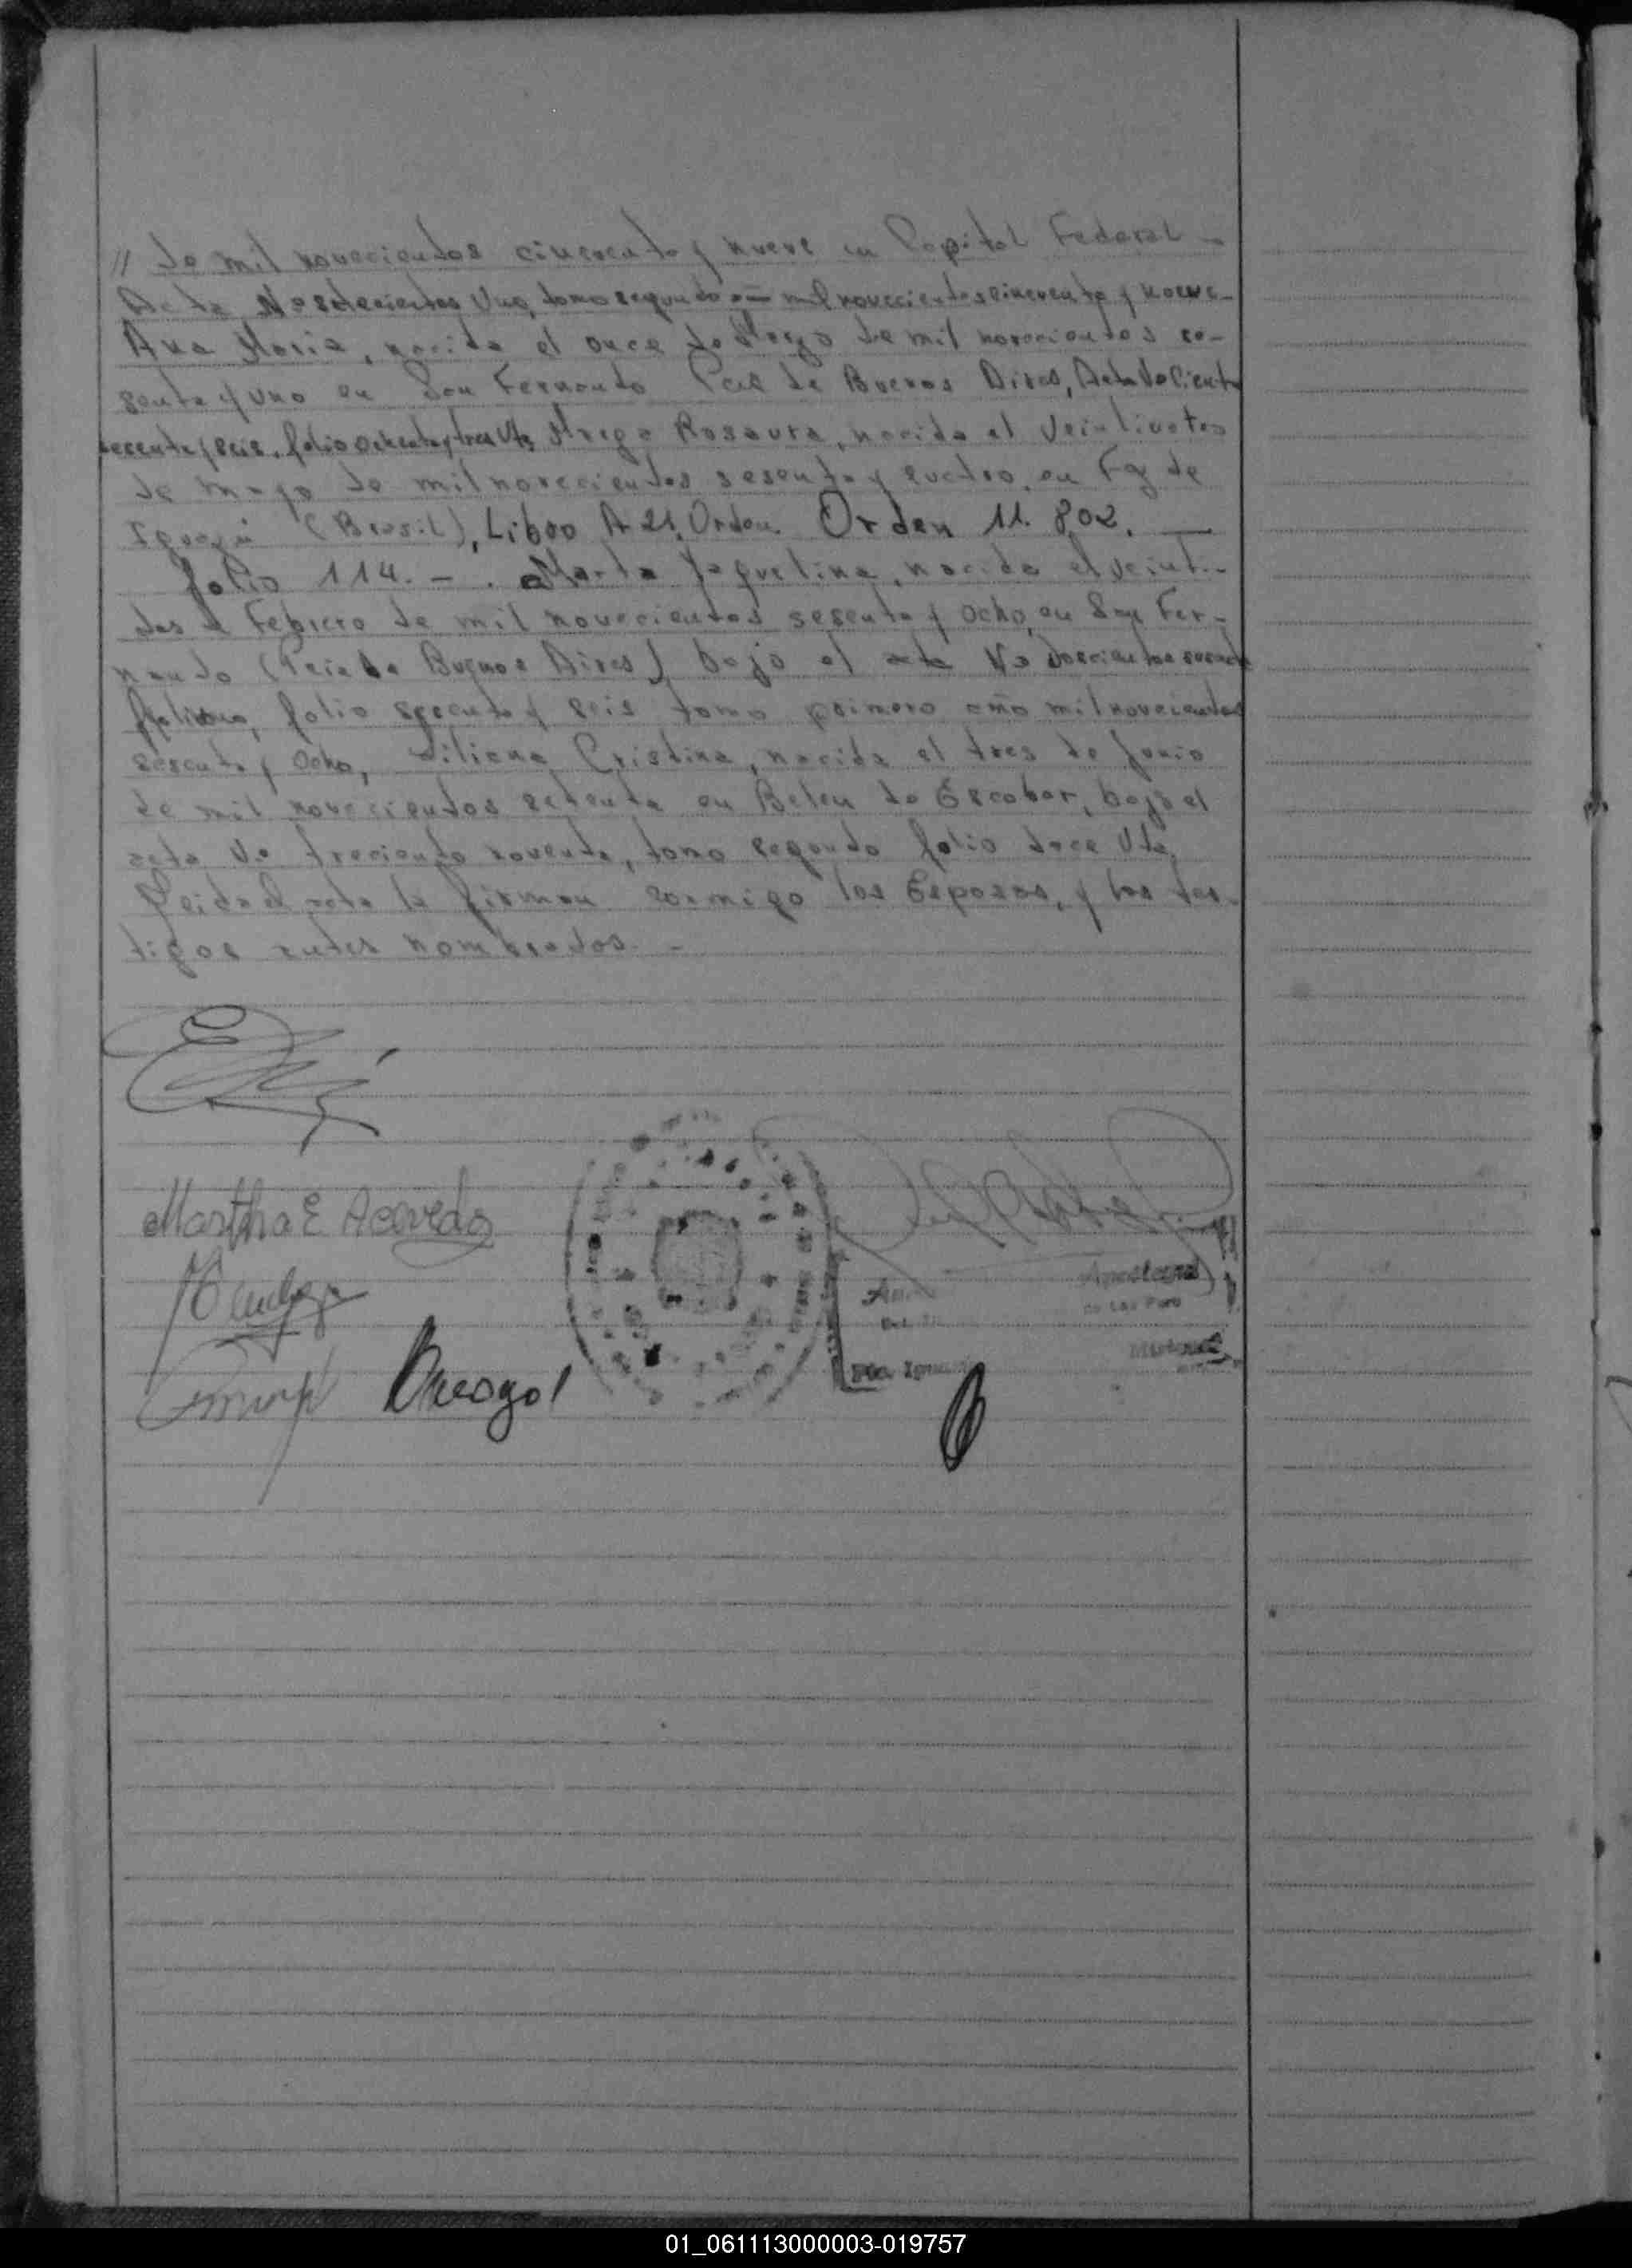 // de mil novecientos cincuenta y nueve en Capital Federal -
Acta No setecientos Uno, tomo segundo año mil novecientos cincuenta y nueve -
Ana Maria, nacida el once de Mayo de mil novecientos se-
senta y uno en San Fernando Pcia de Buenos Aires, Acta No Ciento
sesenta y seis, folio ochenta y tres Vta, Rosaura, nacida el Veinticuatro
de mayo de mil novecientos sesenta y cuatro, en Foz de
Iguazú (Brasil), Libro A 21, Orden Orden 11.802. —
folio 114. - . Marta Jaquelina, nacida el veinti-
dos de Febrero de mil novecientos sesenta y ocho, en San Fer-
nando (Pcia de Buenos Aires) bajo el acta No Doscientos
folio sesenta y seis tomo primero año mil novecientos
sesenta y ocho, Liliana Cristina, nacida el tres de Junio
de mil novecientos setenta en Belen de Escobar, bajo el
acta No treciento noventa, tomo segundo folio doce Vta,
leida el acta la firman conmigo los Esposos, y los tes-
tigos antes nombrados. -
Martha E Acevedo
Apostegui
Pto. Iguazú
Misiones
01_061113000003-019757